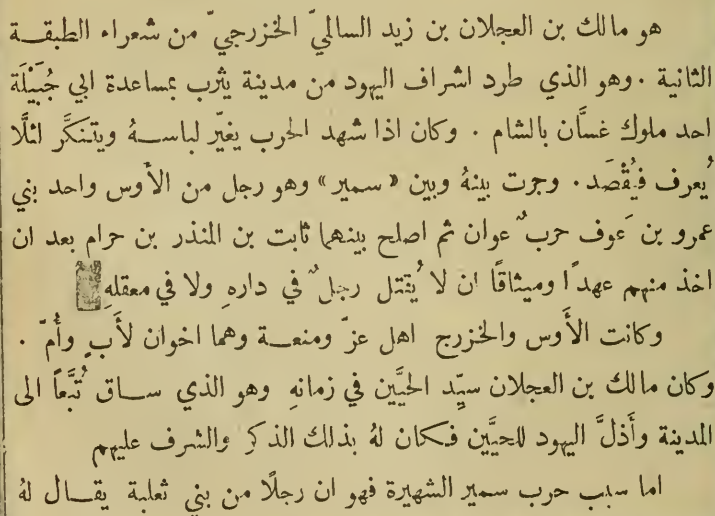 هو مالك بن العجلان بن زيد السالميّ الخزرجيّ من شعراء الطبقة
الثانية . وهو الذي طرد اشراف اليهود من مدينة يثرب بمساعدة ابي جُبَيْلَة
احد ملوك غسَّان بالشام . وكان اذا شهد الحرب يغيّر لباسهُ ويتنكَّر لئلَّا
يُعرف فيُقْصَد . وجرت بينهُ وبين « سمير » وهو رجل من الأَوس واحد بني
عمرو بن عَوف حربٌ عوان ثم اصلح بينهما ثابت بن المنذر بن حرام بعد ان
اخذ منهم عهدًا وميثاقًا ان لا يُقتل رجلٌ في دارهِ ولا في معقلهِ
وكانت الأَوس والخزرج اهل عزّ ومنعة وهما اخوان لأَبٍ وأُمّ .
وكان مالك بن العجلان سيّد الحيَّين في زمانهِ وهو الذي ساق تُبَّعًا الى
المدينة وأَذلَّ اليهود للحيَّين فكان لهُ بذلك الذكر والشرف عليهم
اما سبب حرب سمير الشهيرة فهو ان رجلًا من بني ثعلبة يقال لهُ